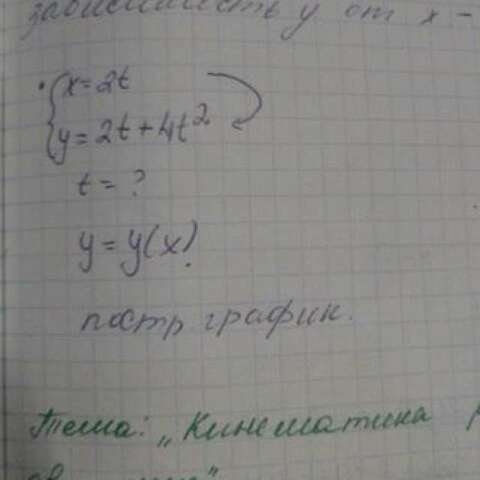 зависимость y от x -
x = 2t
y = 2t + 4t²
t = ?
y = y(x)
постр. график.
Тема: „Кинематика